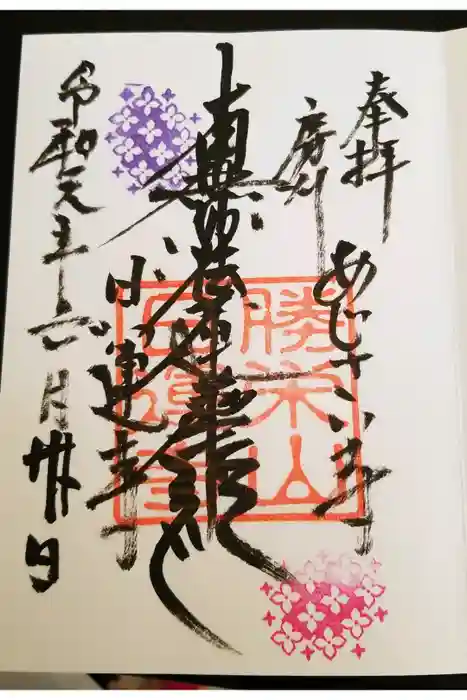 奉拝
房州 あじさい寺
南無妙法蓮華経
日運寺
令和元年六月卅日
勝栄山
日運寺